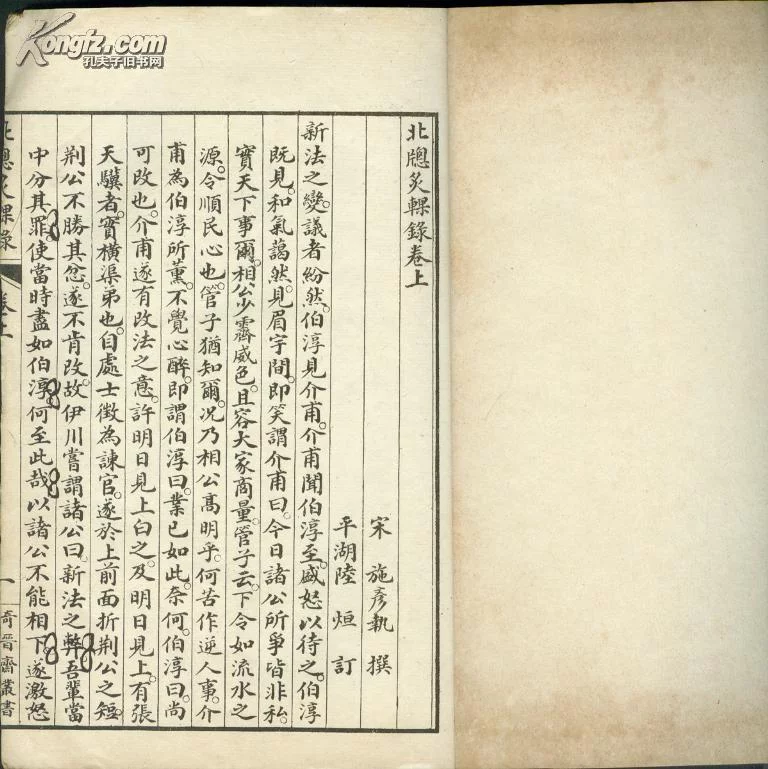 Kongfz.com
孔夫子旧书网
北牕炙輠錄卷上
宋 施彥執 撰
平湖陸 烜 訂
新法之變。議者紛然。伯淳見介甫。介甫聞伯淳至。盛怒以待之。伯淳
既見。和氣藹然。見眉宇間。即笑謂介甫曰。今日諸公所爭皆非私。
實天下事爾。相公少霽威色。且容大家商量。管子云。下令如流水之
源。令順民心也。管子猶知爾。況乃相公高明乎。何苦作逆人事。介
甫為伯淳所薰。不覺心醉。即謂伯淳曰。業已如此。奈何。伯淳曰。尚
可改也。介甫遂有改法之意。許明日見上白之。及明日見上。有張
天驥者。實橫渠弟也。自處士徵為諫官。遂於上前面折荆公之短。
荆公不勝其忿。遂不肯改。故伊川嘗謂諸公曰。新法之弊。吾輩當
中分其罪。使當時盡如伯淳。何至此哉。以諸公不能相下。遂激怒
北牕炙輠錄 卷上 一 奇晉齋叢書